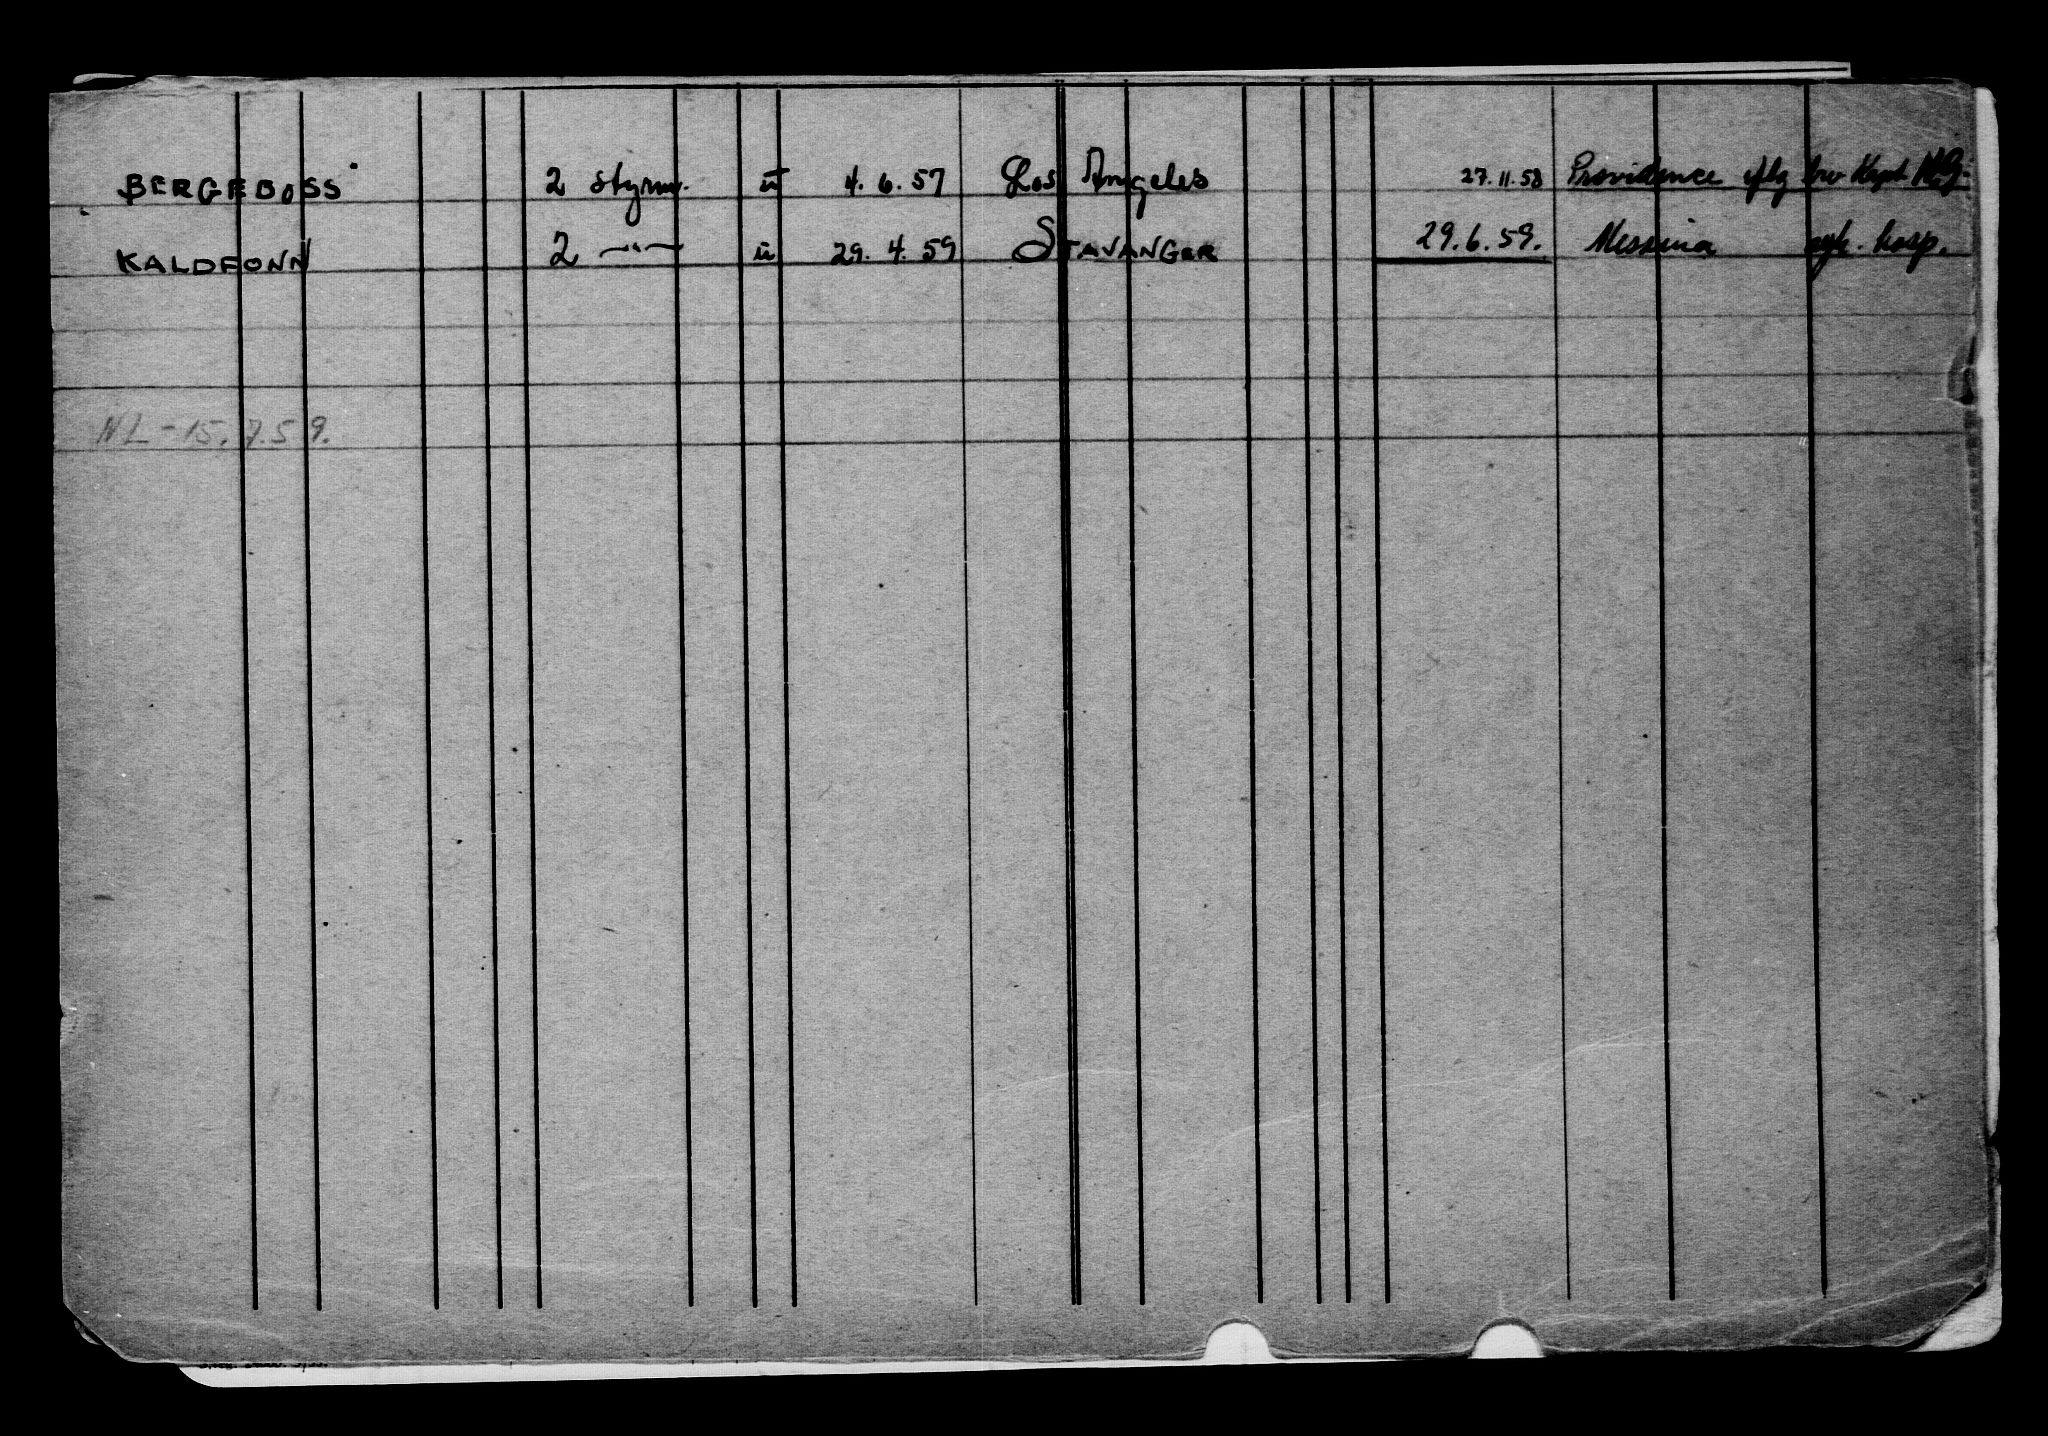 BERGEBOSS 2 styrm. u 4. 6. 57 Los Angeles 27.11.58 Providence iflg brev
KALDFONN 2 —"— u 29. 4. 59 STAVANGER 29. 6. 59. Messina syk. hosp.
NL - 15. 7. 59.